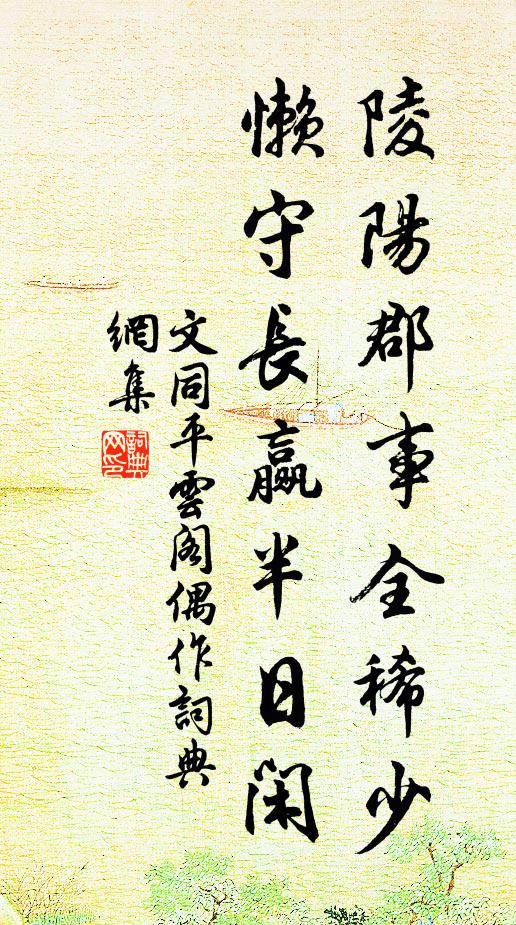 陵陽郡事全稀少
懶守長贏半日閑
文同平雲閣偶作詞典
網集
詞典網印